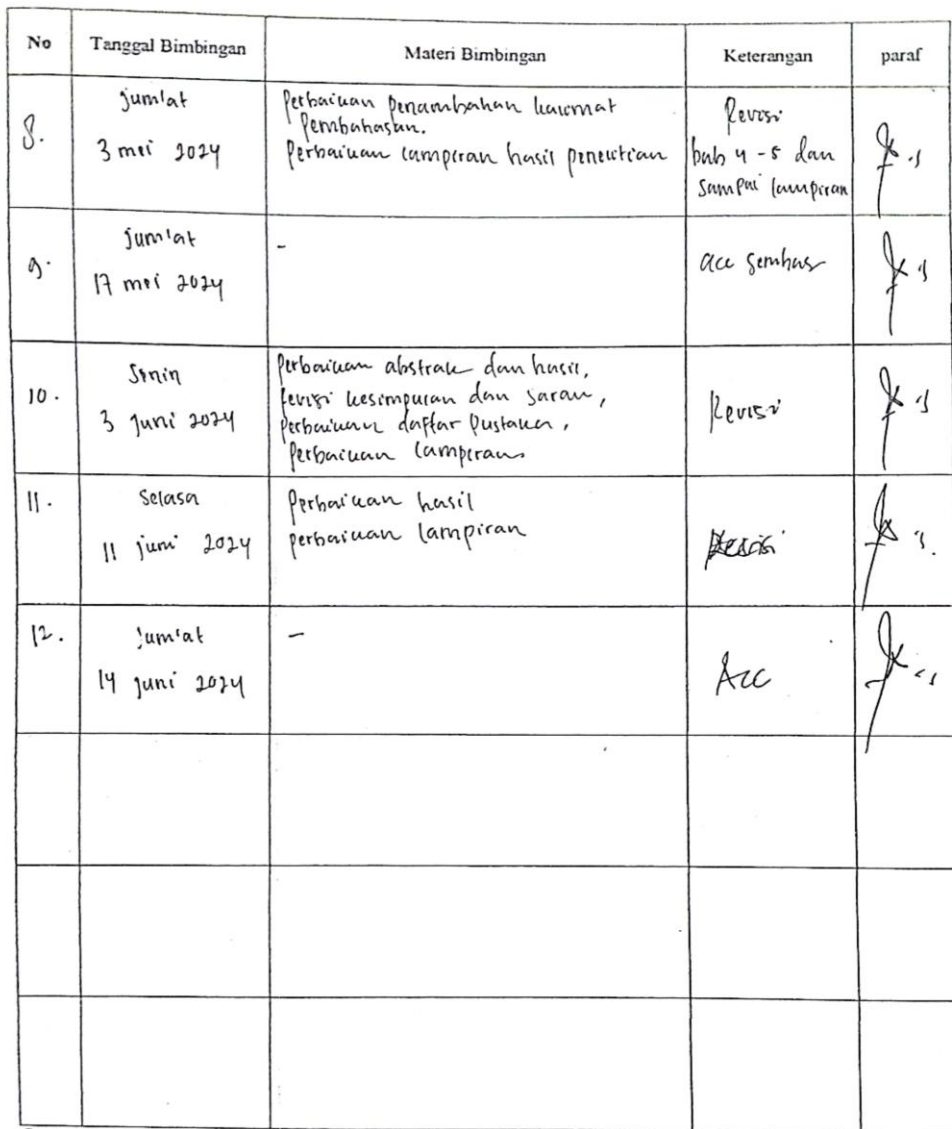 No Tanggal Bimbingan Materi Bimbingan Keterangan paraf
8. Jum'at
3 mei 2024
Perbaikan penambahan kalimat
Pembahasan.
Perbaikan lampiran hasil penelitian
Revisi
bab 4 - 5 dan
sampai lampiran
9. Jum'at
17 mei 2024
-
acc semhas
10. Senin
3 Juni 2024
Perbaikan abstrak dan hasil,
revisi kesimpulan dan saran,
Perbaikan daftar Pustaka,
Perbaikan lampiran
Revisi
11. Selasa
11 juni 2024
Perbaikan hasil
perbaikan lampiran
Revisi
12. Jum'at
14 Juni 2024
-
Acc